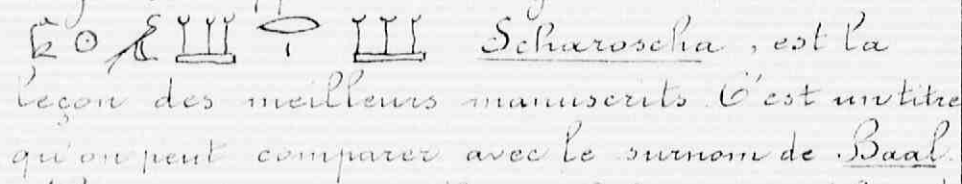 Scharoscha, est la
leçon des meilleurs manuscrits. C'est un titre
qu'on peut comparer avec le surnom de Baal